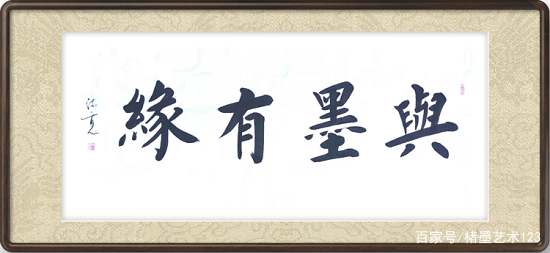 與墨有緣
百家号/楮墨艺术123